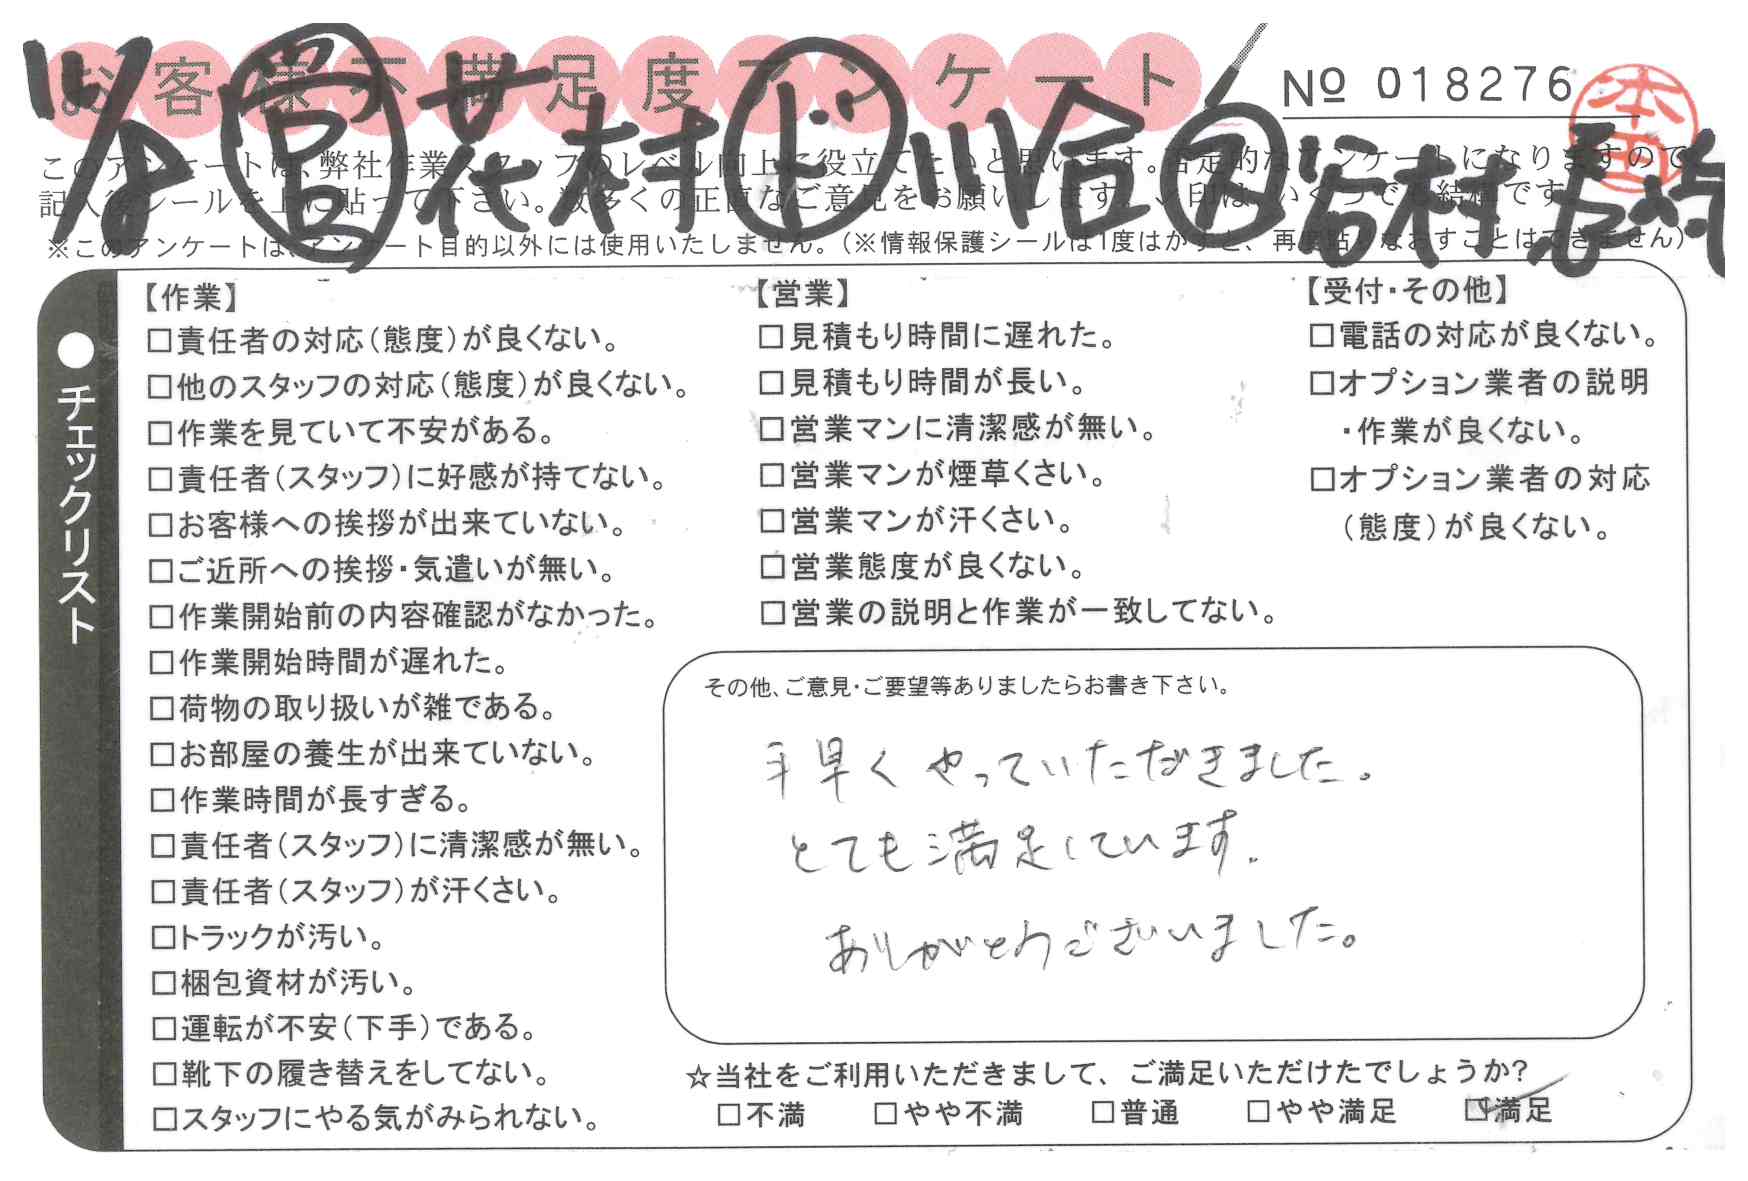 お客様不満足度アンケート
№ 018276
本田
11/8 営 花村 ド 川合 ア 谷村 長崎
このアンケートは、弊社作業スタッフのレベル向上に役立てたいと思います。否定的なアンケートになりますので、
記入後シールを上に貼って下さい。数多くの正直なご意見をお願いします。✓印は、いくつでも結構です。
※このアンケートは、アンケート目的以外には使用いたしません。(※情報保護シールは1度はがすと、再度貼りなおすことはできません)
●チェックリスト
【作業】
□責任者の対応(態度)が良くない。
□他のスタッフの対応(態度)が良くない。
□作業を見ていて不安がある。
□責任者(スタッフ)に好感が持てない。
□お客様への挨拶が出来ていない。
□ご近所への挨拶・気遣いが無い。
□作業開始前の内容確認がなかった。
□作業開始時間が遅れた。
□荷物の取り扱いが雑である。
□お部屋の養生が出来ていない。
□作業時間が長すぎる。
□責任者(スタッフ)に清潔感が無い。
□責任者(スタッフ)が汗くさい。
□トラックが汚い。
□梱包資材が汚い。
□運転が不安(下手)である。
□靴下の履き替えをしてない。
□スタッフにやる気がみられない。
【営業】
□見積もり時間に遅れた。
□見積もり時間が長い。
□営業マンに清潔感が無い。
□営業マンが煙草くさい。
□営業マンが汗くさい。
□営業態度が良くない。
□営業の説明と作業が一致してない。
【受付・その他】
□電話の対応が良くない。
□オプション業者の説明
・作業が良くない。
□オプション業者の対応
(態度)が良くない。
その他、ご意見・ご要望等ありましたらお書き下さい。
手早くやっていただきました。
とても満足しています。
ありがとうございました。
☆当社をご利用いただきまして、ご満足いただけたでしょうか?
□不満 □やや不満 □普通 □やや満足 ☑満足